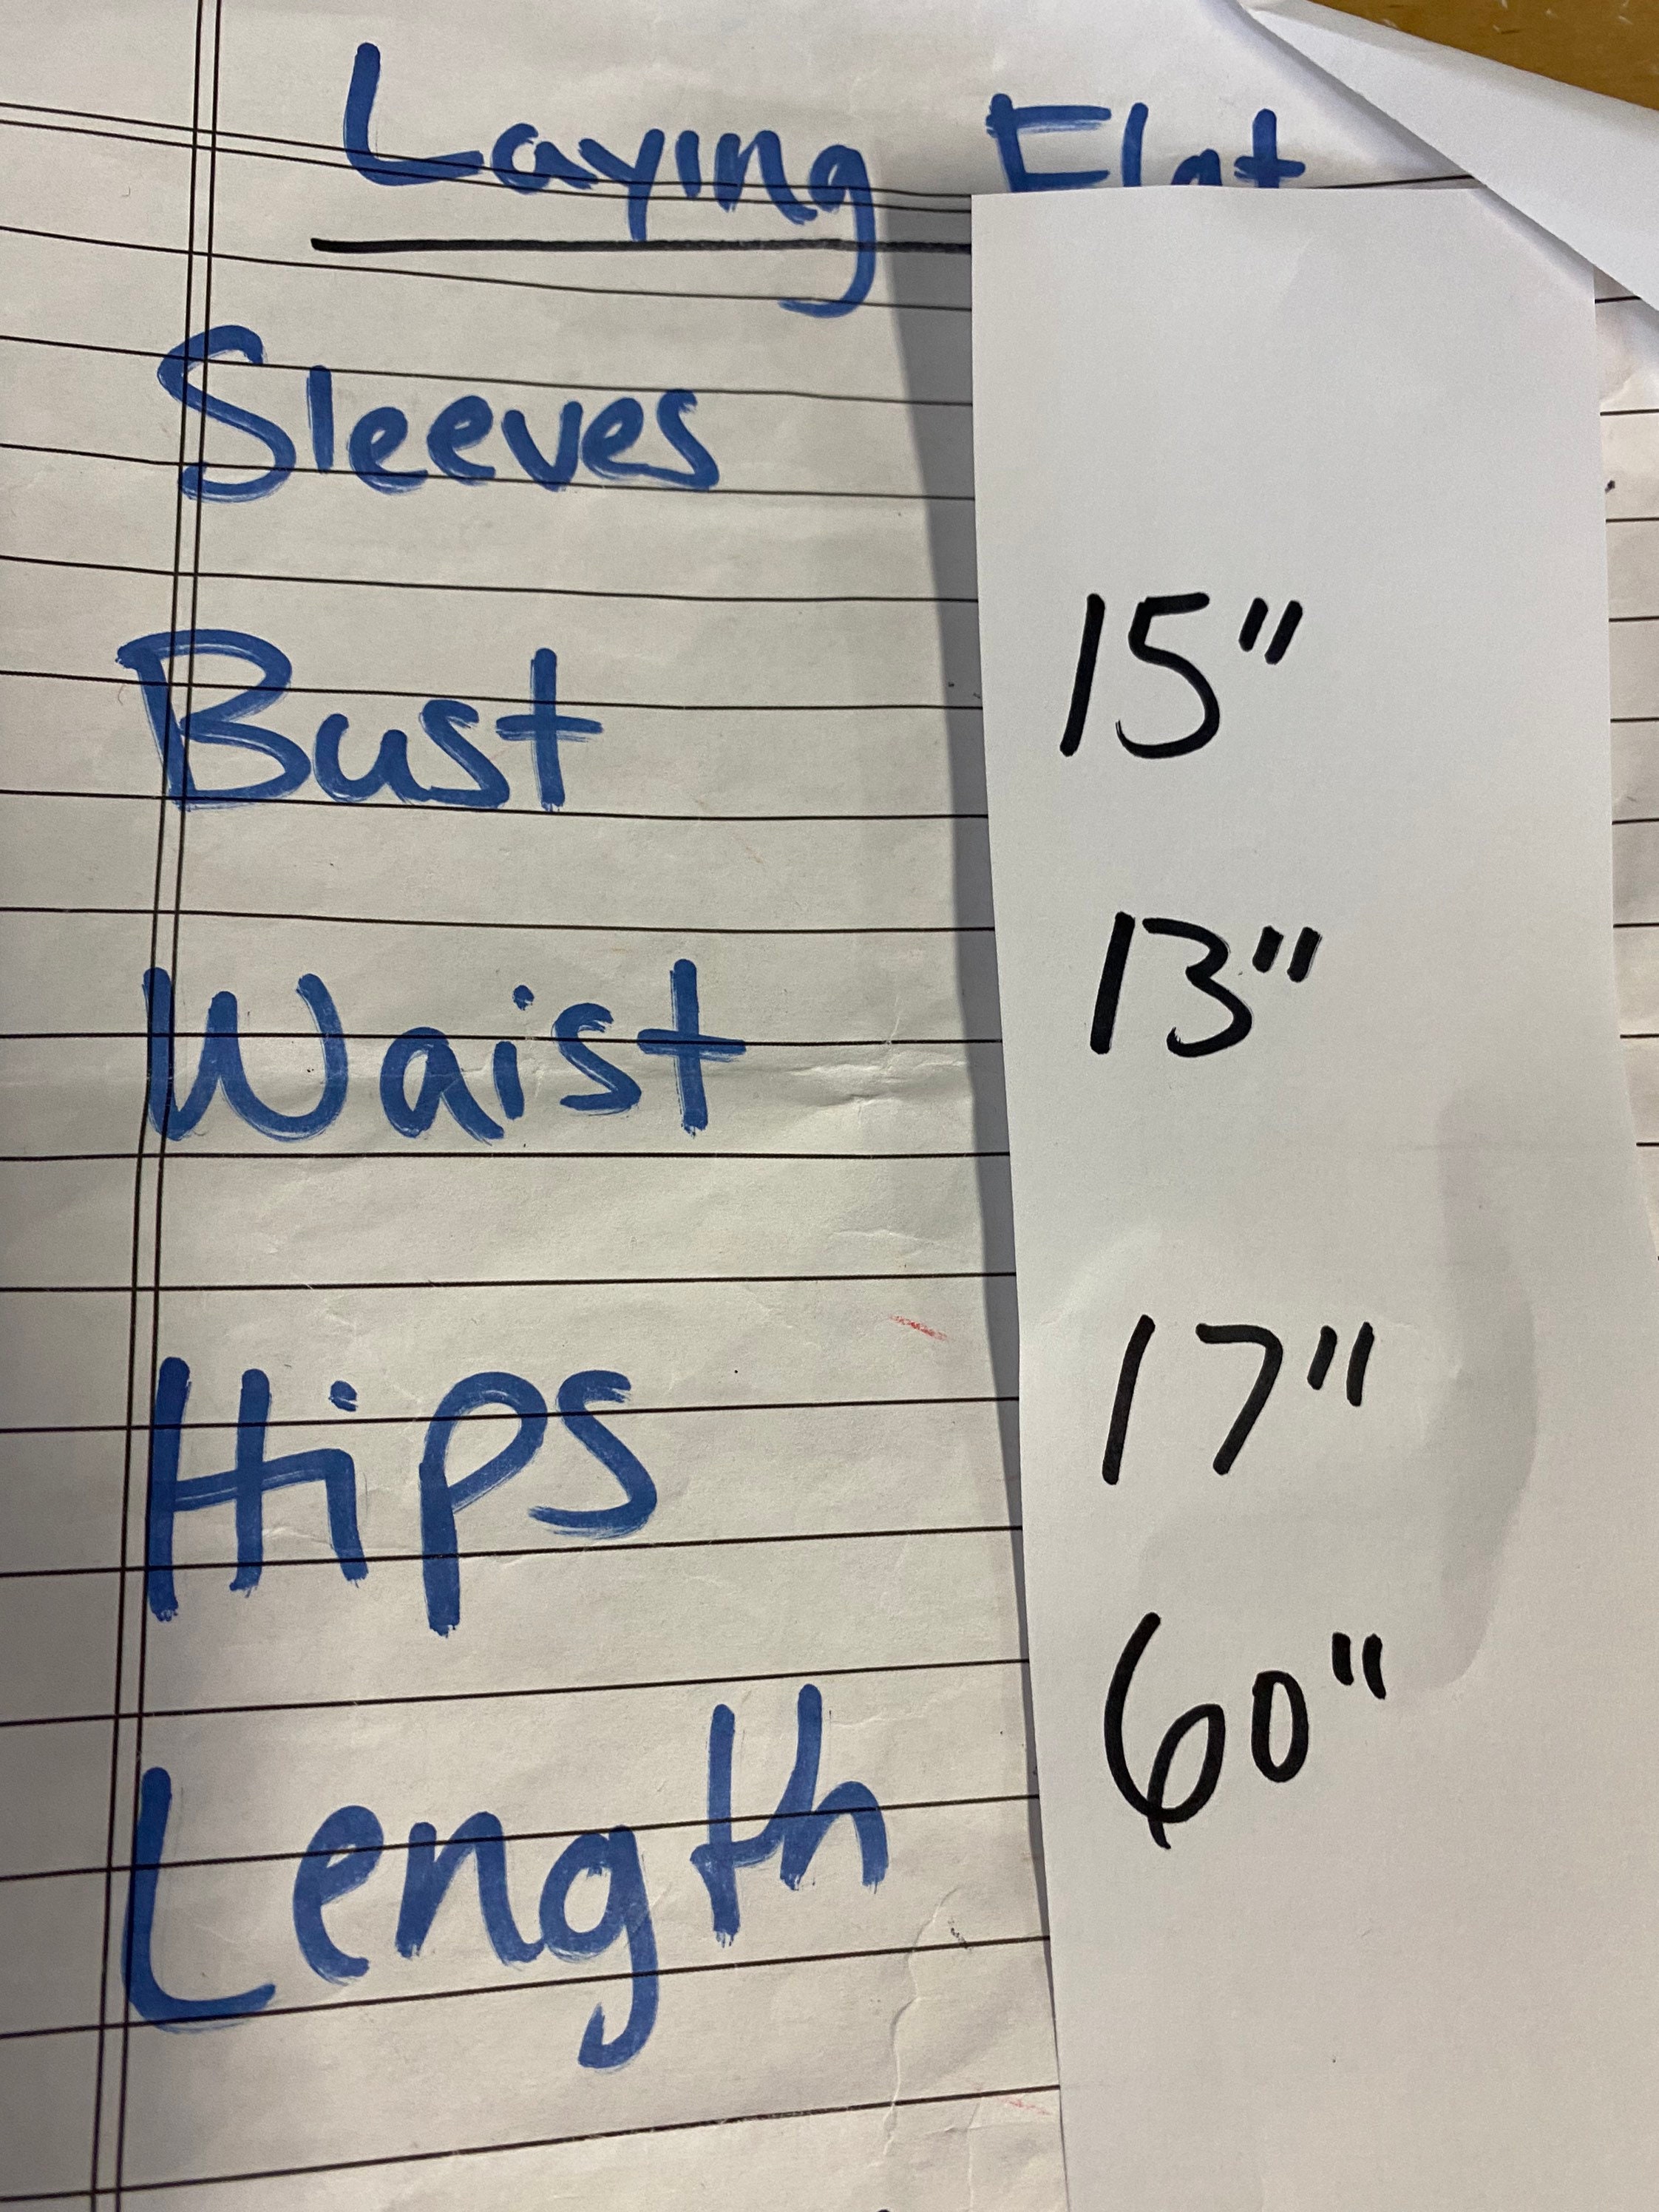 Laying Flat
Sleeves
Bust 15"
Waist 13"
Hips 17"
Length 60"